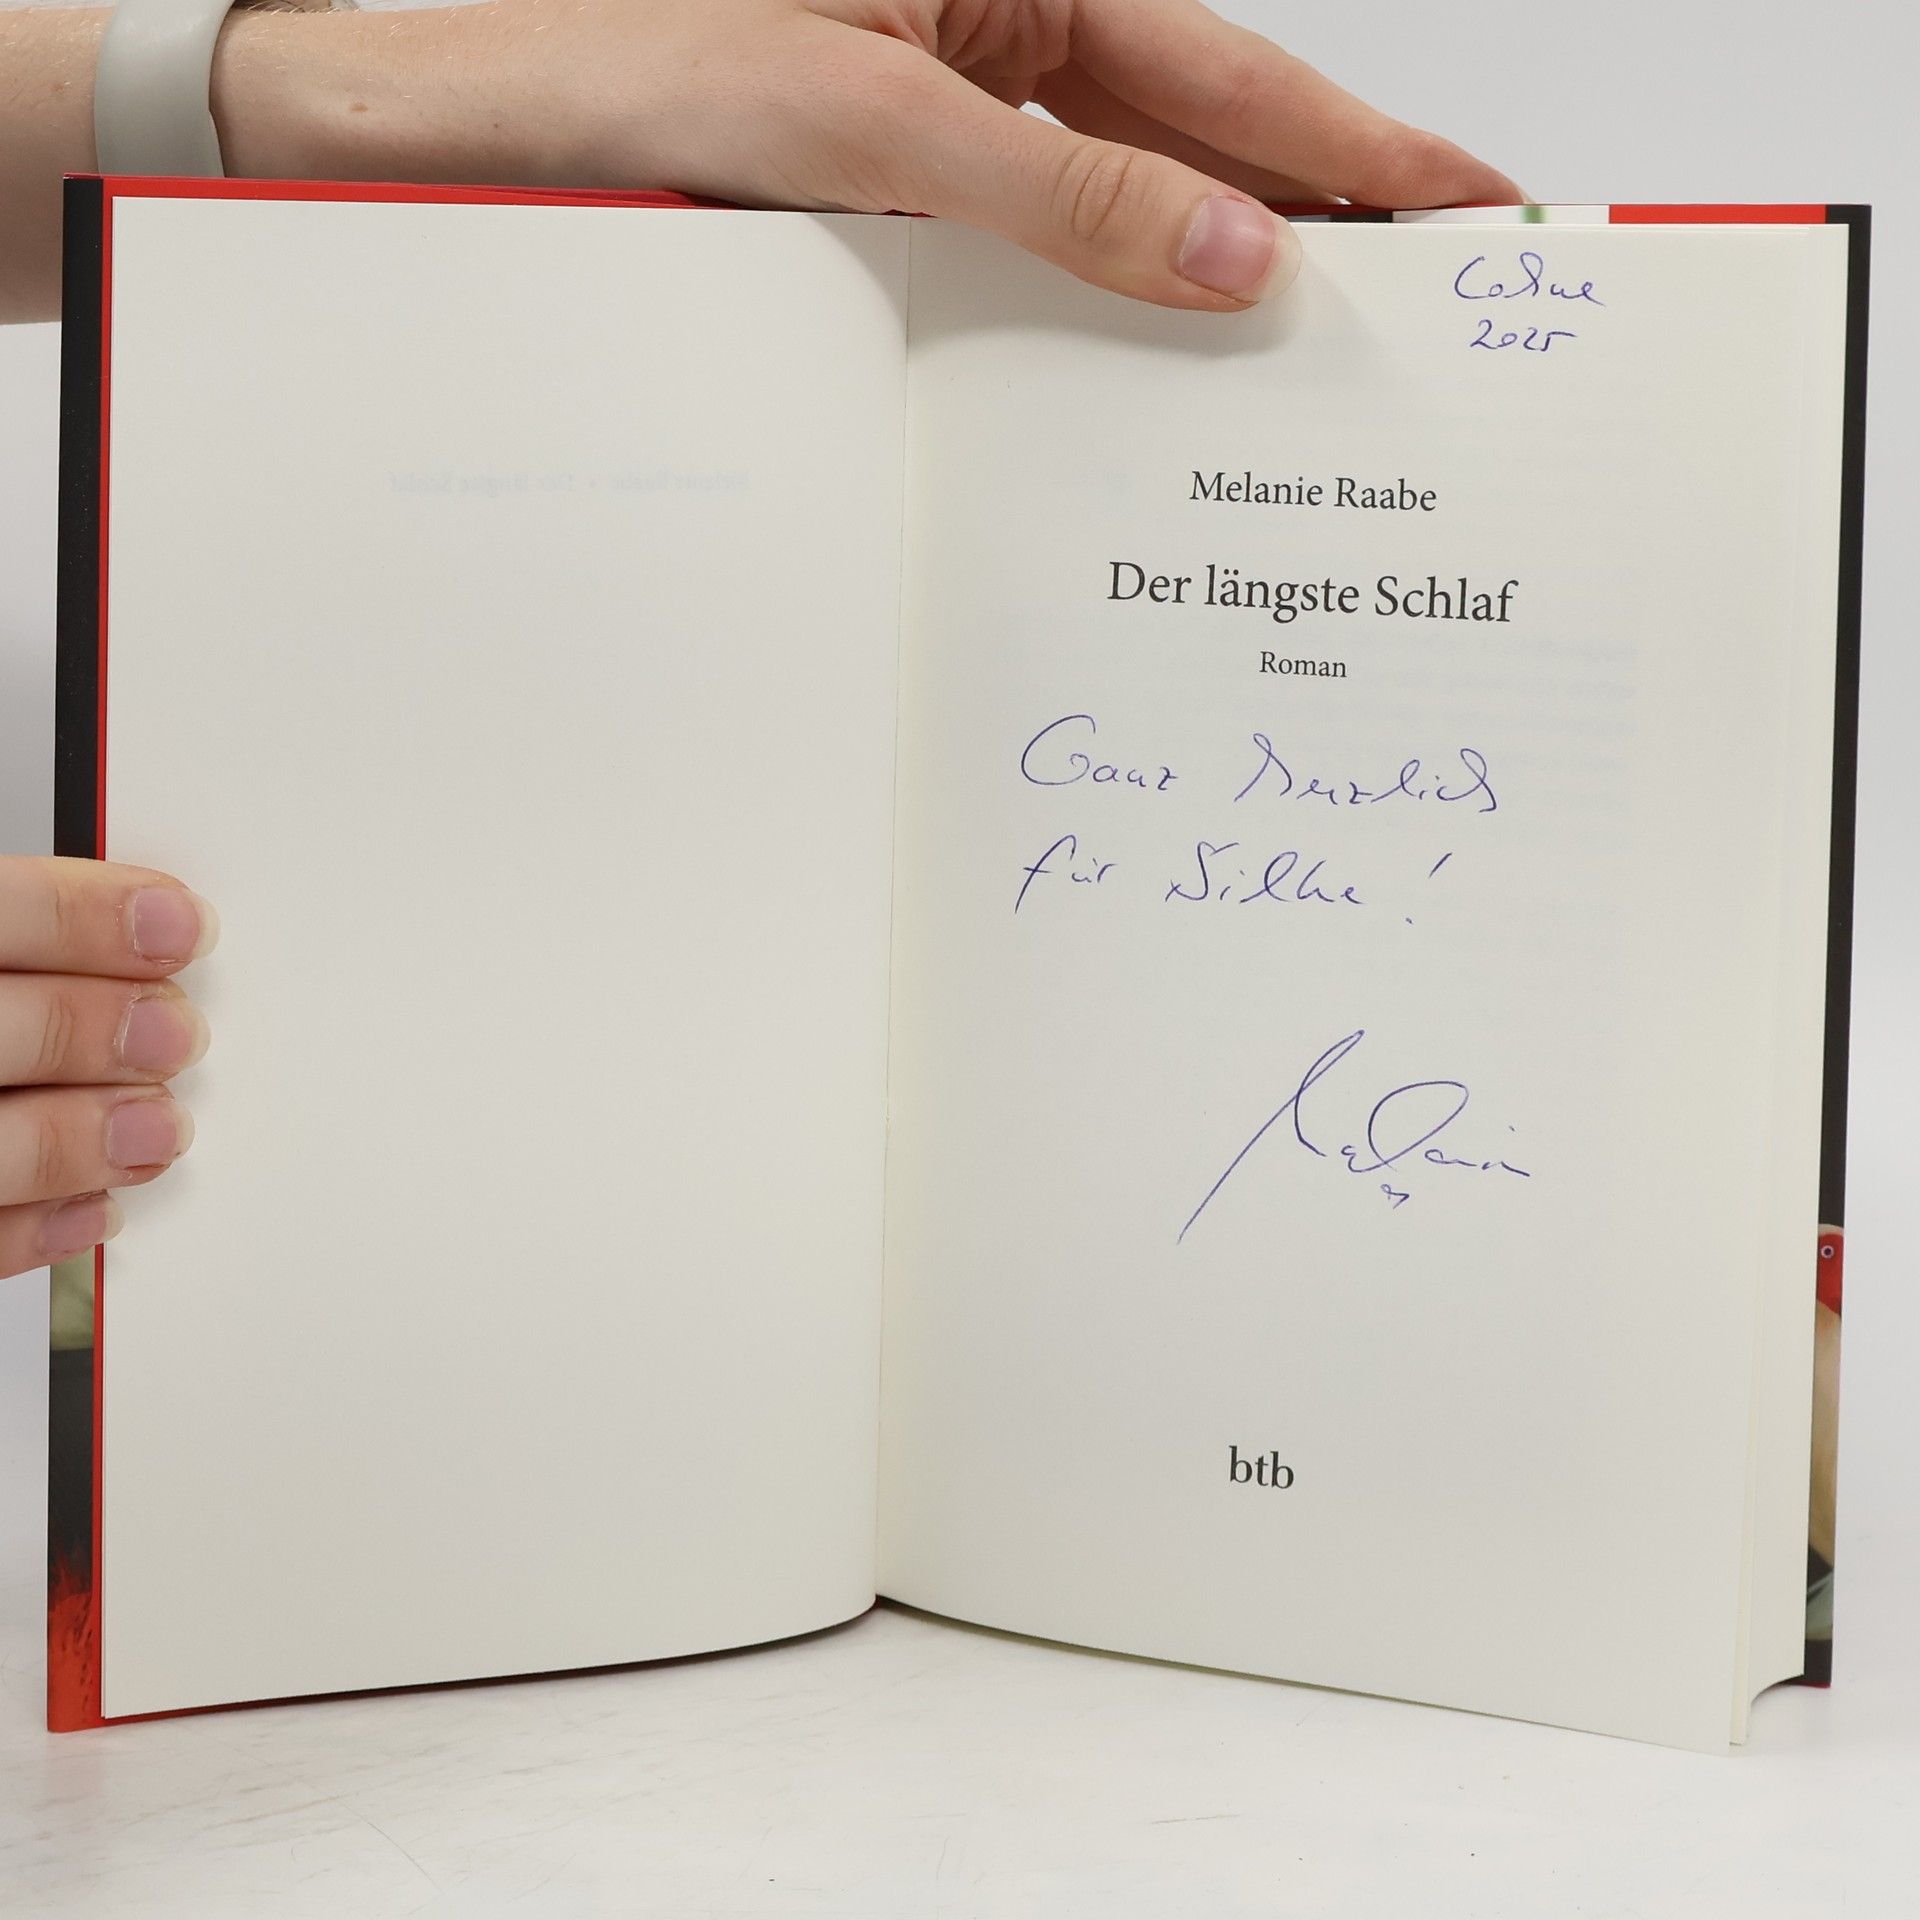 Lohne
2025
Melanie Raabe
Der längste Schlaf
Roman
Ganz herzlich
für Silke!
Melanie
btb